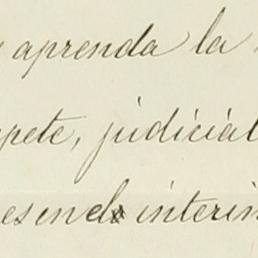 aprenda la
pete, judicial
esende interin